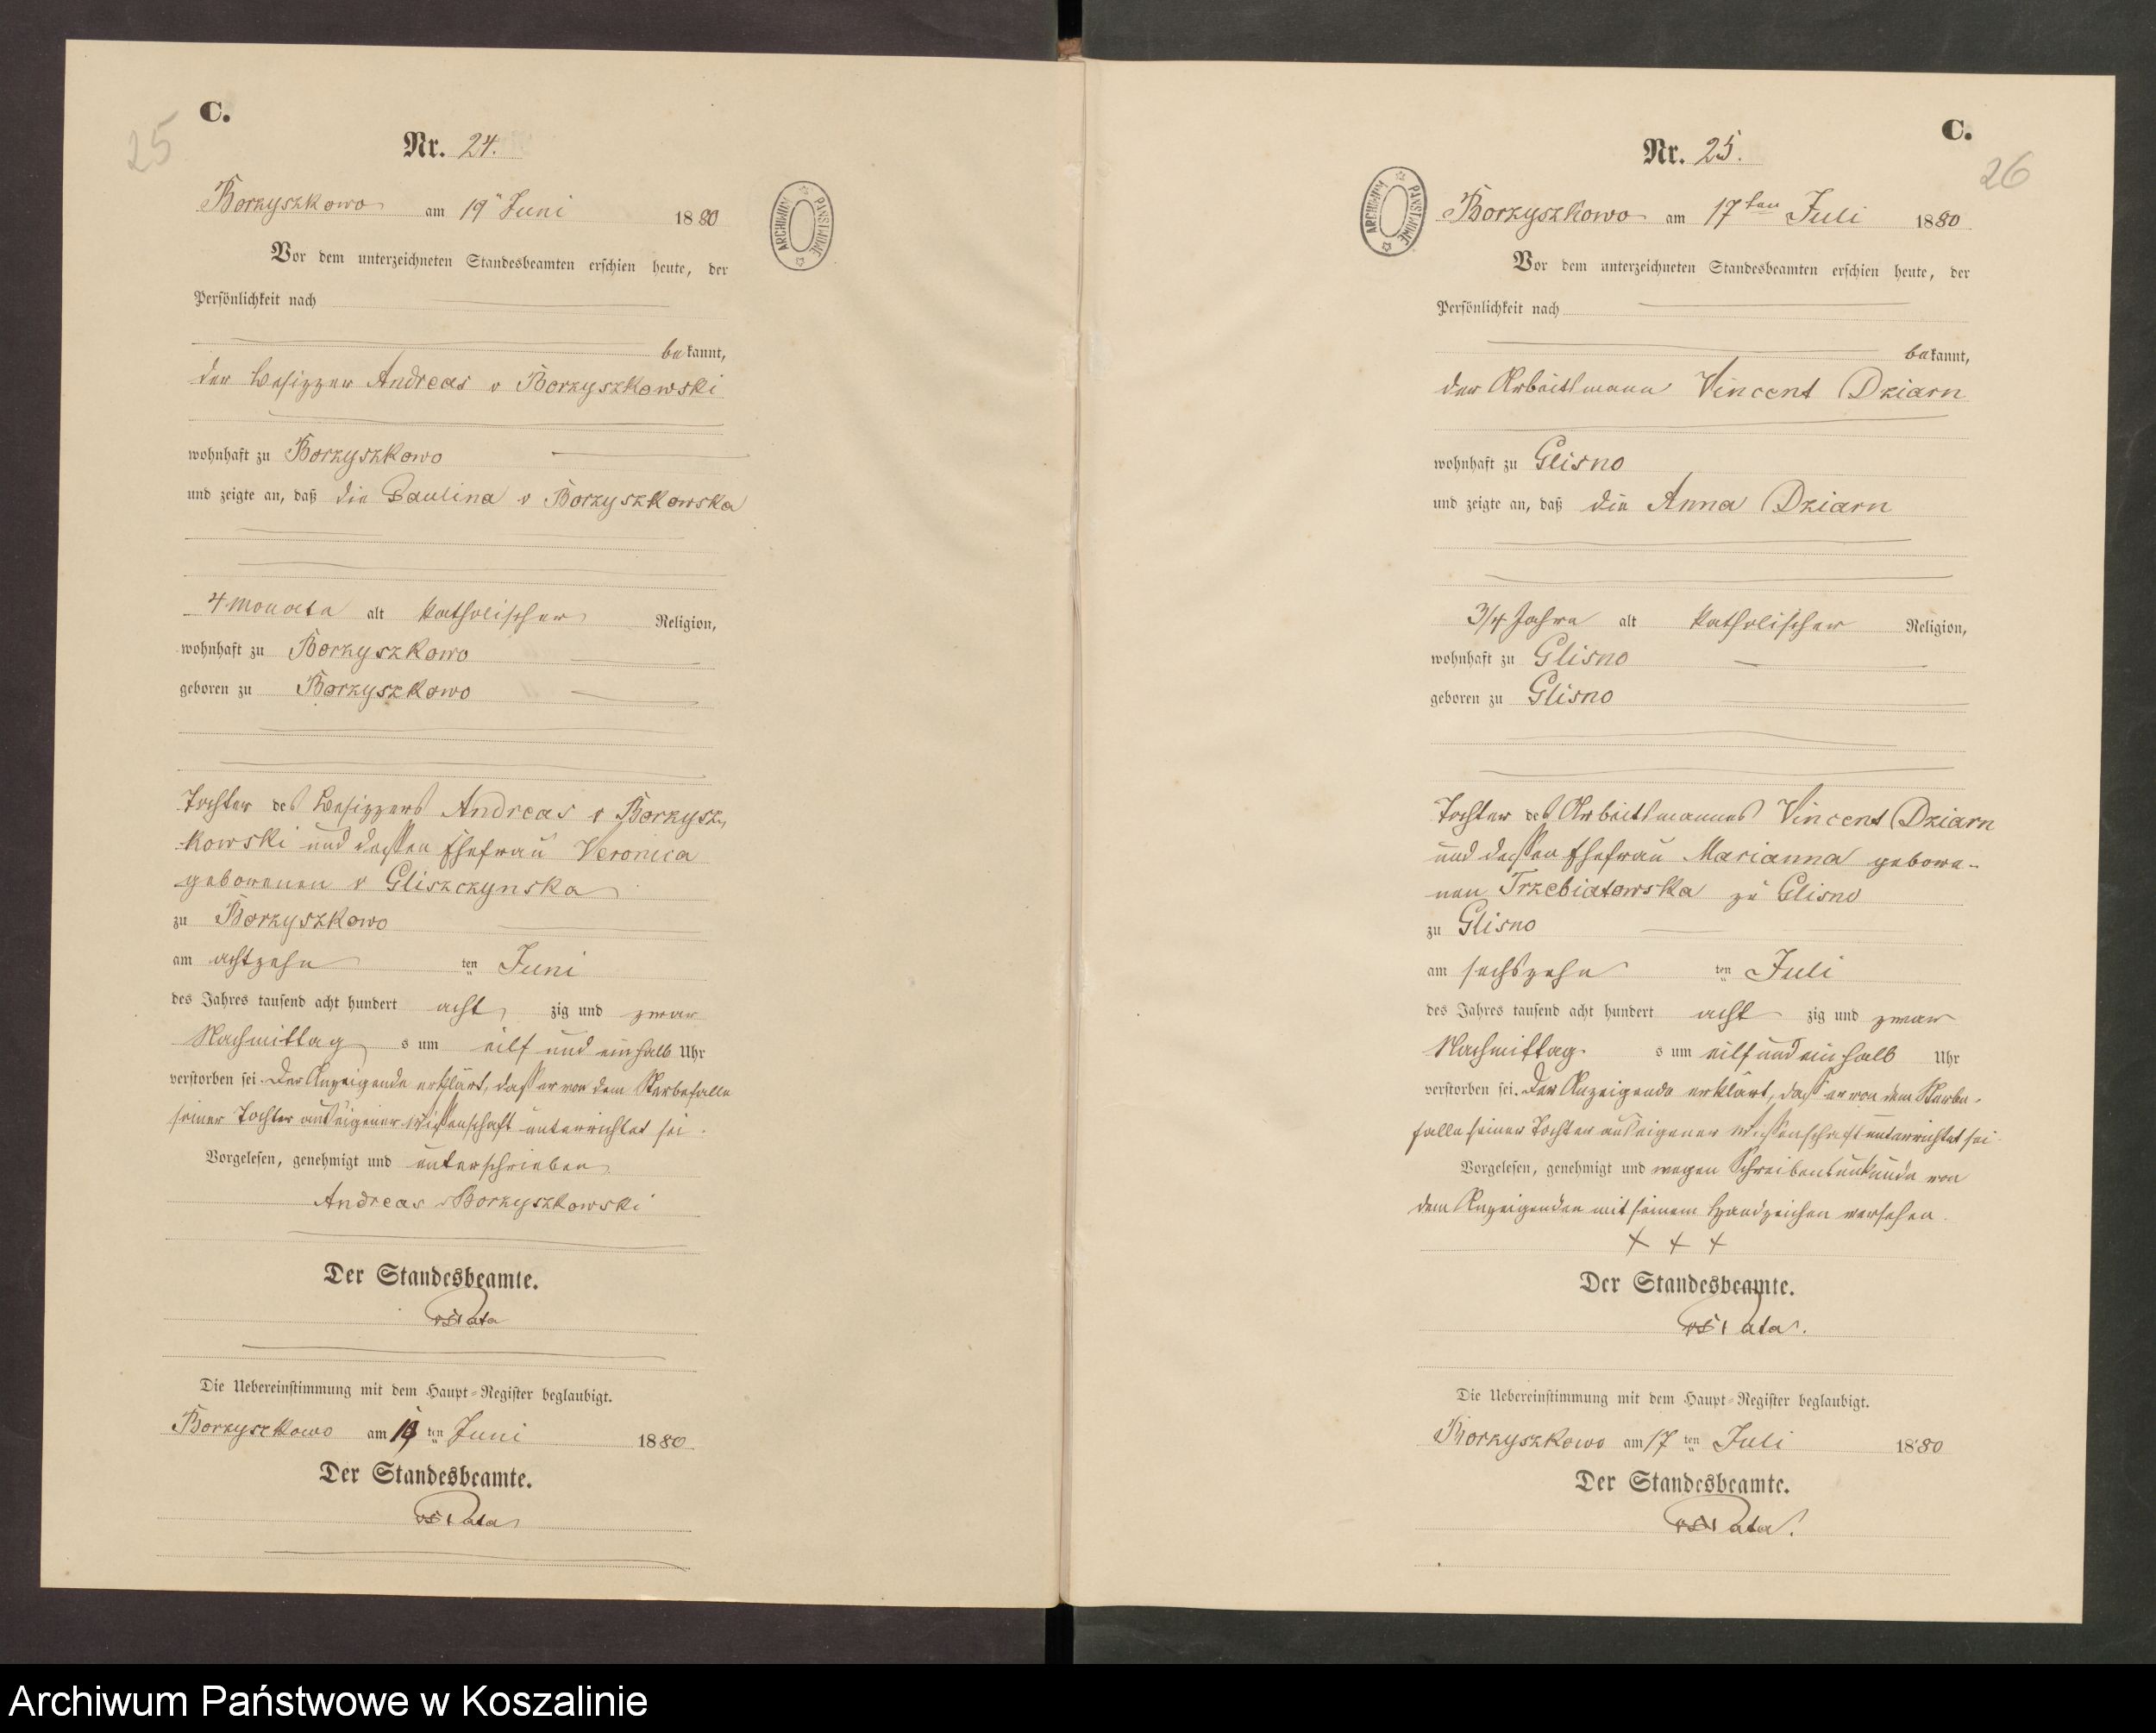 C.
25
Nr. 24.
Borzyszkowo am 19" Juni 1880
ARCHIWUM PAŃSTWOWE
Vor dem unterzeichneten Standesbeamten erschien heute, der
Persönlichkeit nach
bekannt,
der Besizzer Andreas v Borzyszkowski
wohnhaft zu Borzyszkowo
und zeigte an, daß die Paulina v Borzyszkowska
4 Monate alt katholischer Religion,
wohnhaft zu Borzyszkowo
geboren zu Borzyszkowo
Tochter des Besizzers Andreas v Borzysz-
kowski und dessen Ehefrau Veronica
geborenen v Gliszczynska
zu Borzyszkowo
am achtzehn ten Juni
des Jahres tausend acht hundert acht zig und zwar
Nachmittag s um eilf und einhalb Uhr
verstorben sei. Der Anzeigende erklärt, dass er von dem Sterbefalle
seiner Tochter aus eigener Wissenschaft unterrichtet sei.
Vorgelesen, genehmigt und unterschrieben
Andreas v Borzyszkowski
Der Standesbeamte.
Die Uebereinstimmung mit dem Haupt-Register beglaubigt.
Borzyszkowo am 19 ten Juni 1880
Der Standesbeamte.
C.
26
Nr. 25.
ARCHIWUM PAŃSTWOWE
Borzyszkowo am 17ten Juli 1880
Vor dem unterzeichneten Standesbeamten erschien heute, der
Persönlichkeit nach
bekannt,
der Arbeitsmann Vincent Dziarn
wohnhaft zu Glisno
und zeigte an, daß die Anna Dziarn
3/4 Jahre alt katholischer Religion,
wohnhaft zu Glisno
geboren zu Glisno
Tochter des Arbeitsmannes Vincent Dziarn
und dessen Ehefrau Marianna gebore-
nen Trzebiatowska zu Glisno
zu Glisno
am sechszehn ten Juli
des Jahres tausend acht hundert acht zig und zwar
Nachmittag s um eilf und einhalb Uhr
verstorben sei. Der Anzeigende erklärt, dass er von dem Sterbe-
falle seiner Tochter aus eigener Wissenschaft unterrichtet sei.
Vorgelesen, genehmigt und wegen Schreibensunkunde von
dem Anzeigenden mit seinem Handzeichen versehen.
+ + +
Der Standesbeamte.
Die Uebereinstimmung mit dem Haupt-Register beglaubigt.
Borzyszkowo am 17 ten Juli 1880
Der Standesbeamte.
Archiwum Państwowe w Koszalinie